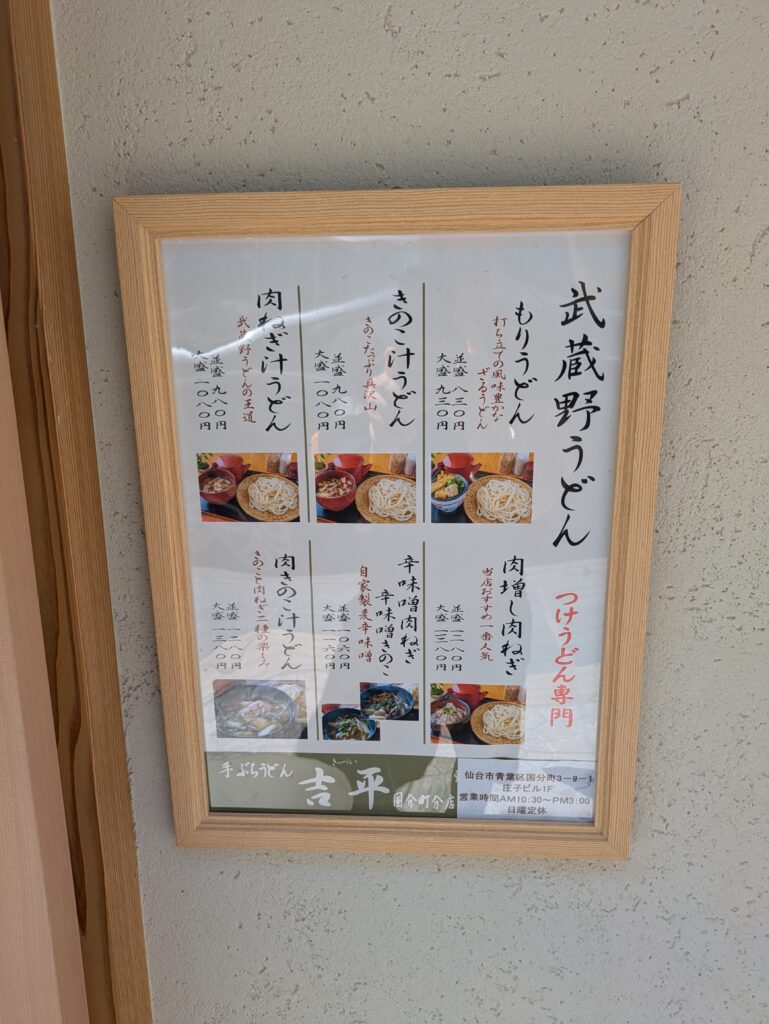 武蔵野うどん
つけうどん専門
もりうどん
打ち立ての風味豊かな
ざるうどん
並盛 八三〇円
大盛 九三〇円
きのこ汁うどん
きのこたっぷり具沢山
並盛 九八〇円
大盛 一〇八〇円
肉ねぎ汁うどん
武蔵野うどんの王道
並盛 九八〇円
大盛 一〇八〇円
肉増し肉ねぎ
当店おすすめ一番人気
並盛 一二八〇円
大盛 一三八〇円
辛味噌肉ねぎ
辛味噌きのこ
自家製麦辛味噌
並盛 一〇六〇円
大盛 一一六〇円
肉きのこ汁うどん
きのこと肉ねぎ二種の楽しみ
並盛 一二八〇円
大盛 一三八〇円
手ぶちうどん
きっぺい
吉平
国分町分店
仙台市青葉区国分町3-9-1
庄子ビル1F
営業時間AM10:30〜PM3:00
日曜定休